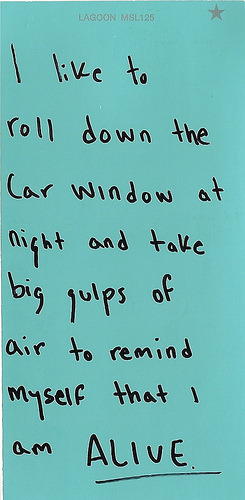 LAGOON MSL125
I like to
roll down the
Car window at
night and take
big gulps of
air to remind
myself that I
am ALIVE.